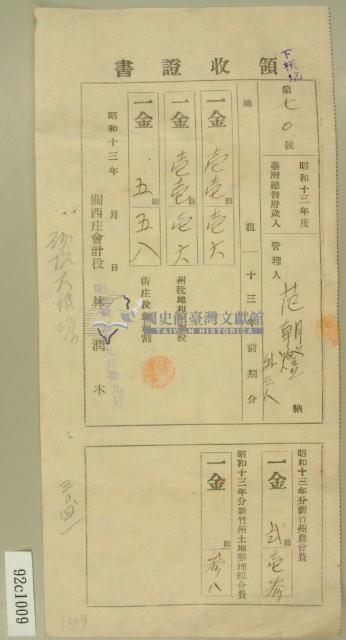 領收證書
下橫坑
第七〇號
昭和十三年度
臺灣總督府歲入
管理人 范朝燈 外三人 納
地租 十三年前期分
一金 壱壱圓壱六
州稅地租附加稅
一金 壱壱圓壱六
街庄稅地租割
一金 五圓五八
昭和十三年 月 日
關西庄會計役 林潤木
國史館臺灣文獻館
TAIWAN HISTORICA
昭和十三年分新竹州農會費
一金 弐圓壱参
昭和十三年分新竹州土地整理組合費
一金 圓参八
92c1009
1009